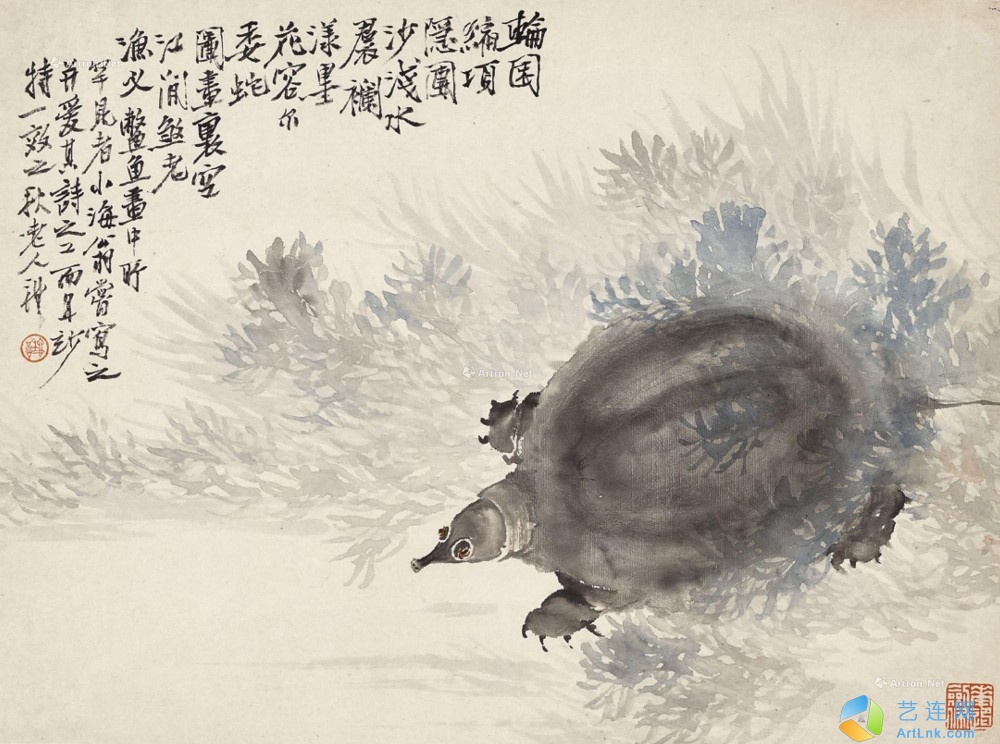 輪囷
縮項
隱圓
沙淺水
裠襴
漾墨
花容尔
委蛇
圖畫裏空
江閒煞老
漁叉 鱉魚畫中所
罕見者小海翁嘗寫之
并愛其詩之工而
特一效之秋老人
Artron.Net
Artron.Net
艺连网
ArtLnk.com